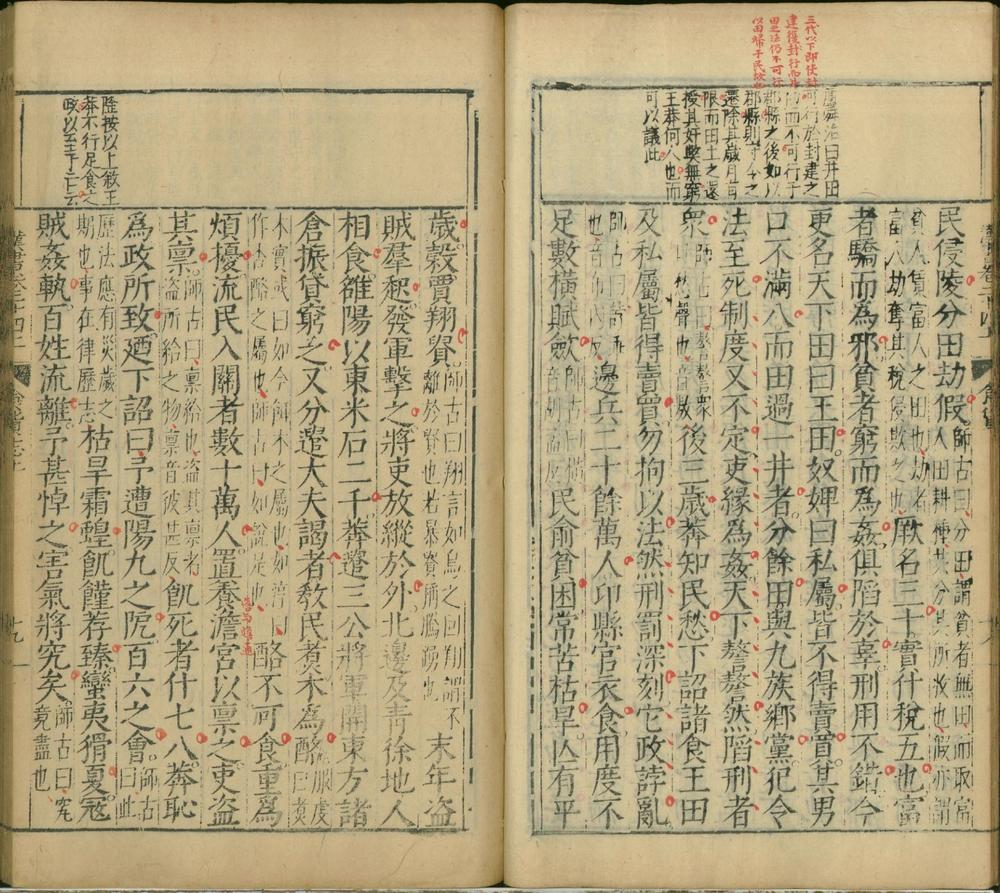 三代以下即使封
建復封行而井
田之法仍不可行
以田歸于民故也
舜治曰井田
可行於封建之
而不可行于
郡縣之後如以
郡縣則守令之
遷除其歲月有
限而田土之還
授其奸獘無窮
王莽何人也而
可以議此
民侵陵分田劫假師古曰分田謂貧者無田而取富
人田耕種共分其所收也假亦謂
貧人賃富人之田也劫者
富人劫奪其稅侵欺之也厥名三十實什稅五也富
者驕而為邪貧者窮而為姦俱陷於辜刑用不錯今
更名天下田曰王田奴婢曰私屬皆不得賣買其男
口不滿八而田過一井者分餘田與九族鄉黨犯令
法至死制度又不定吏緣為姦天下謷謷然陷刑者
衆師古曰謷謷衆
聲也音敖後三歲莽知民愁下詔諸食王田
及私屬皆得賣買勿拘以法然刑罰深刻它政誖亂
師古曰誖乖
也音布內反邊兵二十餘萬人卬縣官衣食用度不
足數橫賦歛師古曰橫
民俞貧困常苦枯旱亾有平
歲穀賈翔貴師古曰翔言如鳥之回翔謂不
離於貴也若暴貴稱騰踴也末年盜
賊羣起發軍擊之將吏放縱於外北邊及青徐地人
相食雒陽以東米石二千莽遣三公將軍開東方諸
倉振貸窮乏又分遣大夫謁者教民煮木為酪服虔
曰煮
木實或曰如今餌木之屬也如淳曰
作杏酪之屬也師古曰如說是也酪不可食重為
煩擾流民入關者數十萬人置養澹官以稟之吏盜
其稟師古曰稟給也盜其稟者
盜所給之物稟音彼甚反飢死者什七八莽恥
為政所致廼下詔曰予遭陽九之阸百六之會師古
曰此
歷法應有災歲之
期也事在律歷志枯旱霜蝗飢饉荐臻蠻夷猾夏寇
賊姦軌百姓流離予甚悼之害氣將究矣師古曰究
竟盡也
陞按以上敘王
莽不行足食之
政以至于亡云